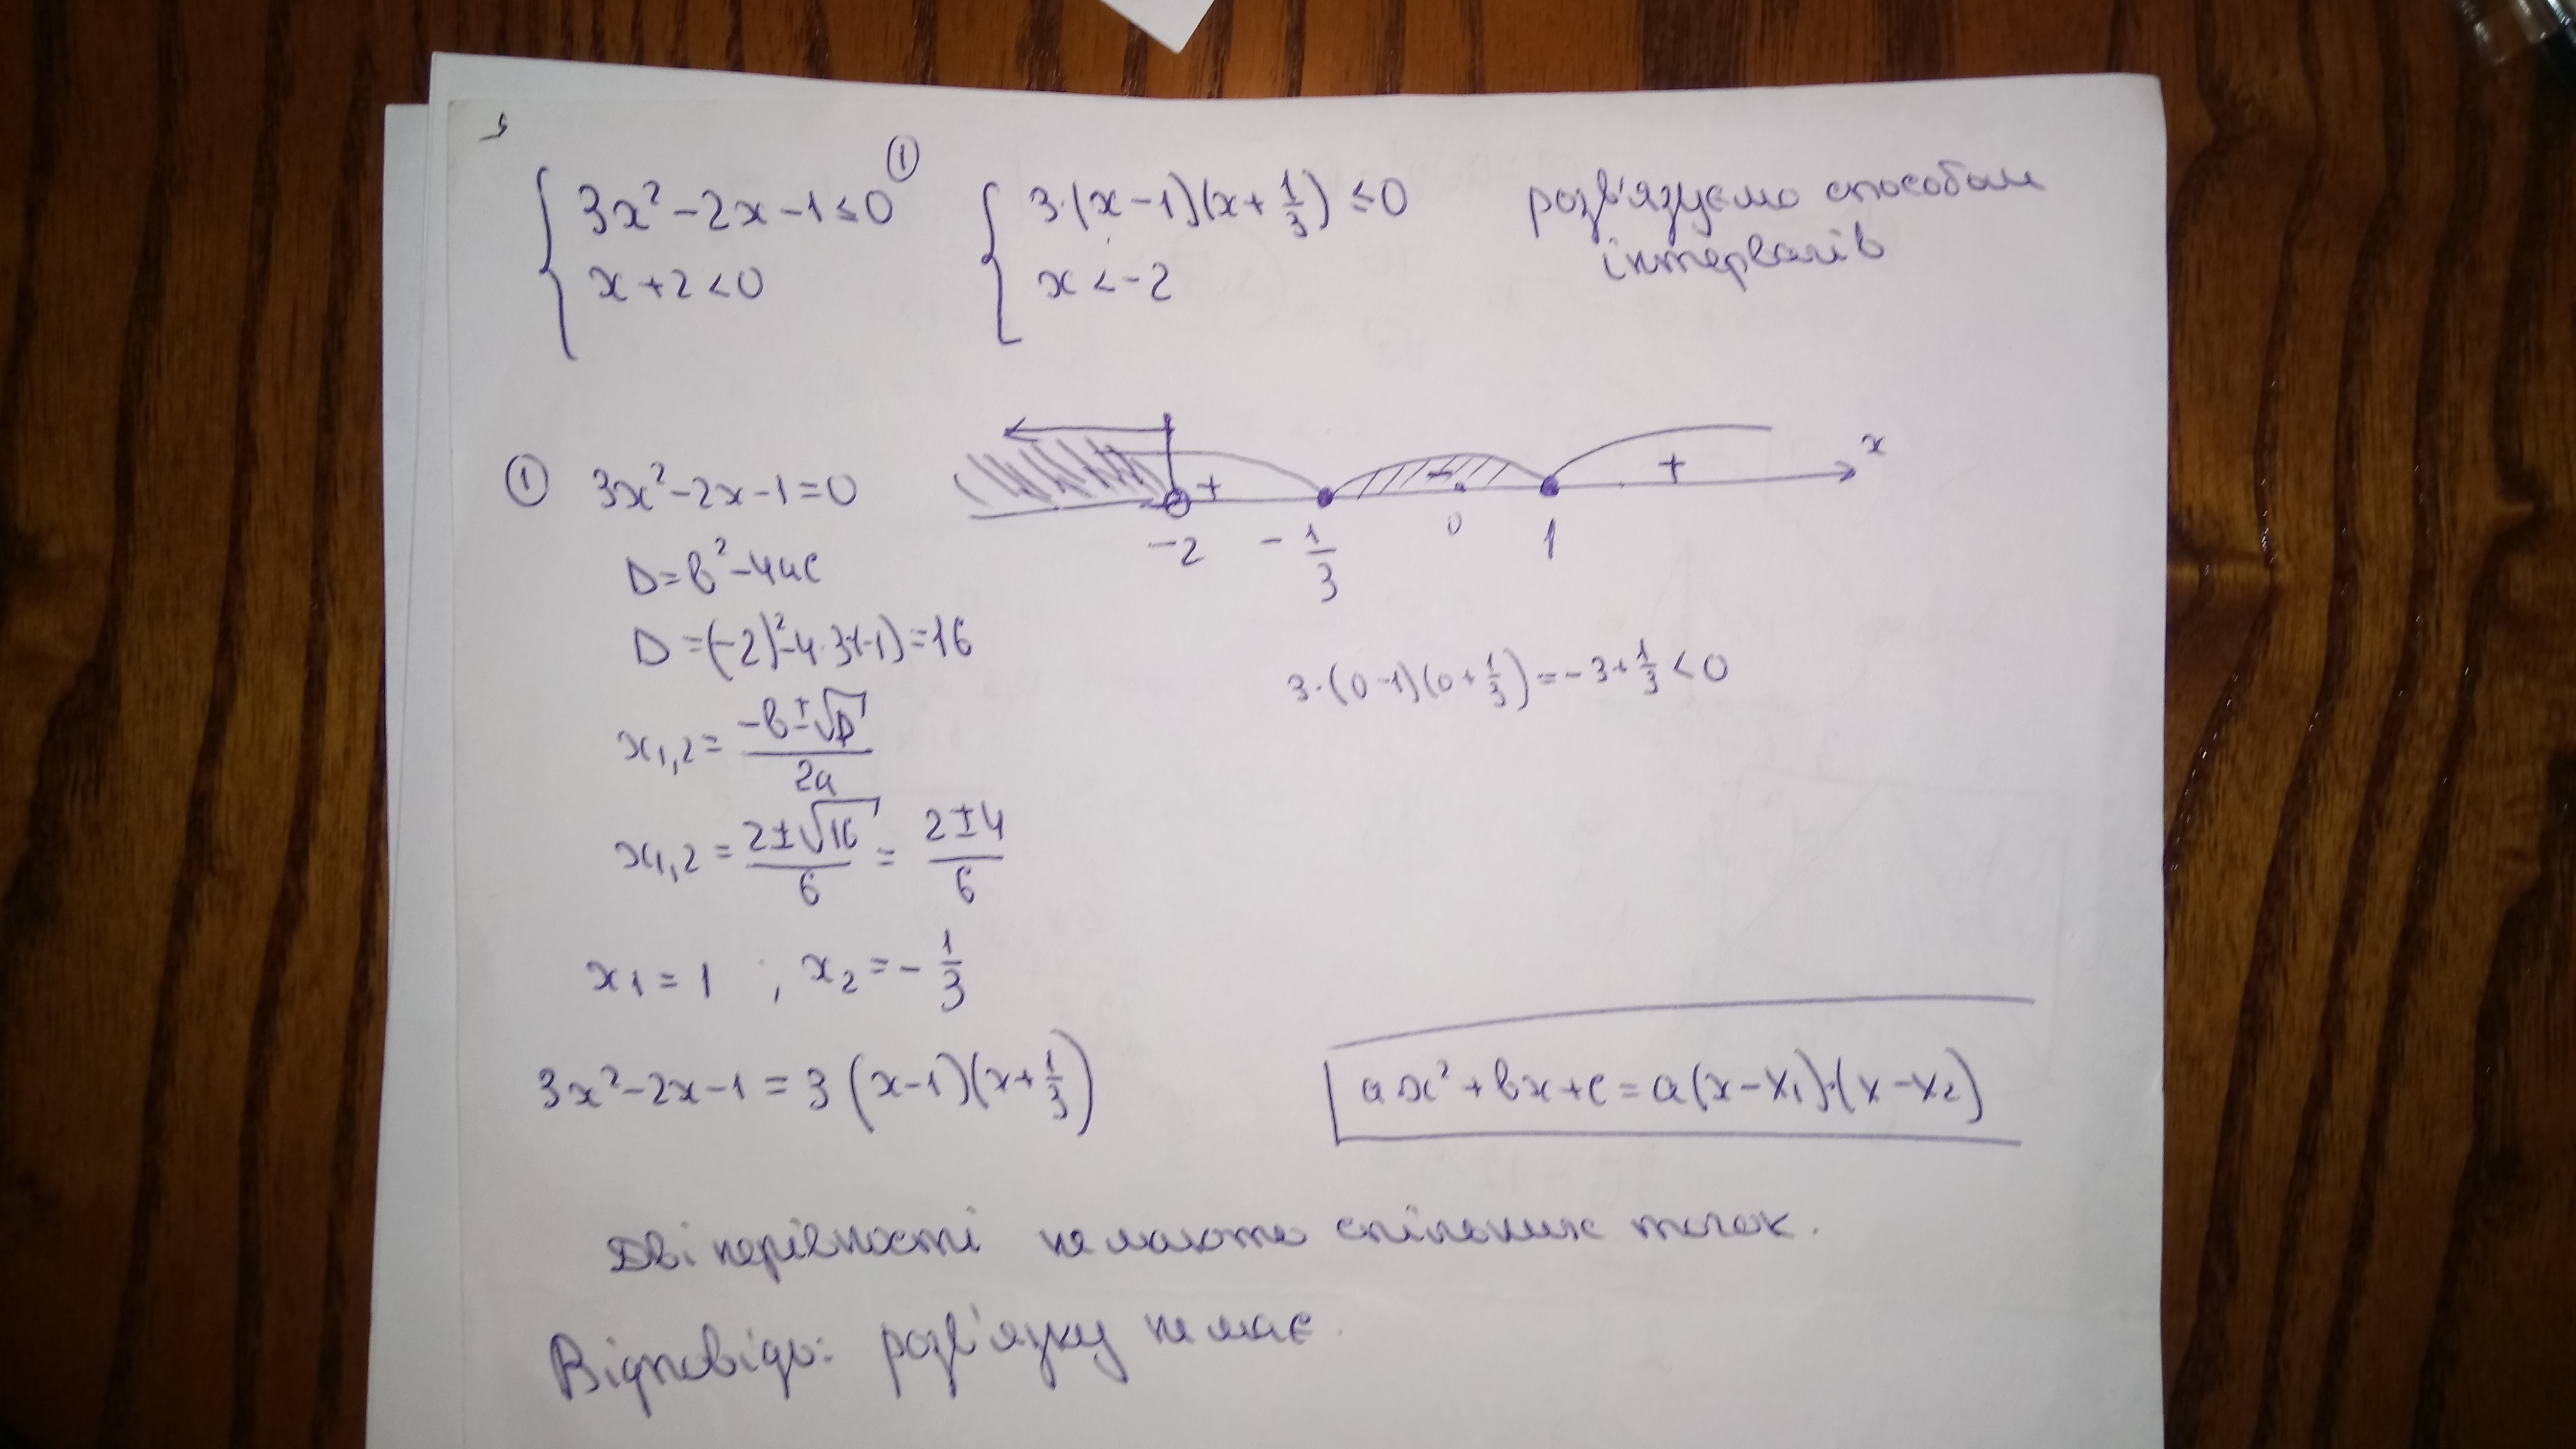 ①
3x² - 2x - 1 ≤ 0
x + 2 < 0
3·(x - 1)(x + 1/3) ≤ 0
x < -2
розв'язуємо способом
інтервалів
+ - + x
-2 -1/3 0 1
① 3x² - 2x - 1 = 0
D = b² - 4ac
D = (-2)² - 4·3·(-1) = 16
x₁,₂ = (-b ± √D)/2a
x₁,₂ = (2 ± √16)/6 = (2 ± 4)/6
x₁ = 1 ; x₂ = - 1/3
3x² - 2x - 1 = 3 (x - 1)(x + 1/3)
3·(0 - 1)(0 + 1/3) = - 3 + 1/3 < 0
ax² + bx + c = a(x - x₁)·(x - x₂)
Дві нерівності не мають спільних точок.
Відповідь: розв'язку немає.